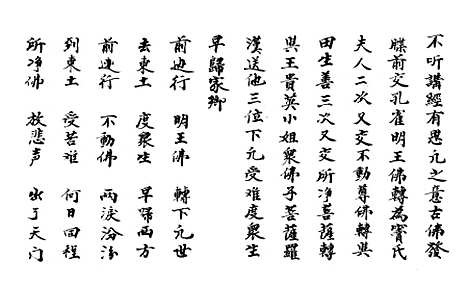 不听講經有思凢之意古佛發
牒前交孔雀明王佛轉為竇氏
夫人二次又交不動尊佛轉與
田生善三次又交所净善薩轉
與王貴英小姐衆佛子菩薩羅
漢送他三位下凢受难度衆生
早歸家鄉
前边行　明王佛　轉下凢世
去東土　度衆生　早歸西方
前边行　不動佛　兩淚汾汾
到東土　受苦难　何日回程
所净佛　放悲声　出了天门